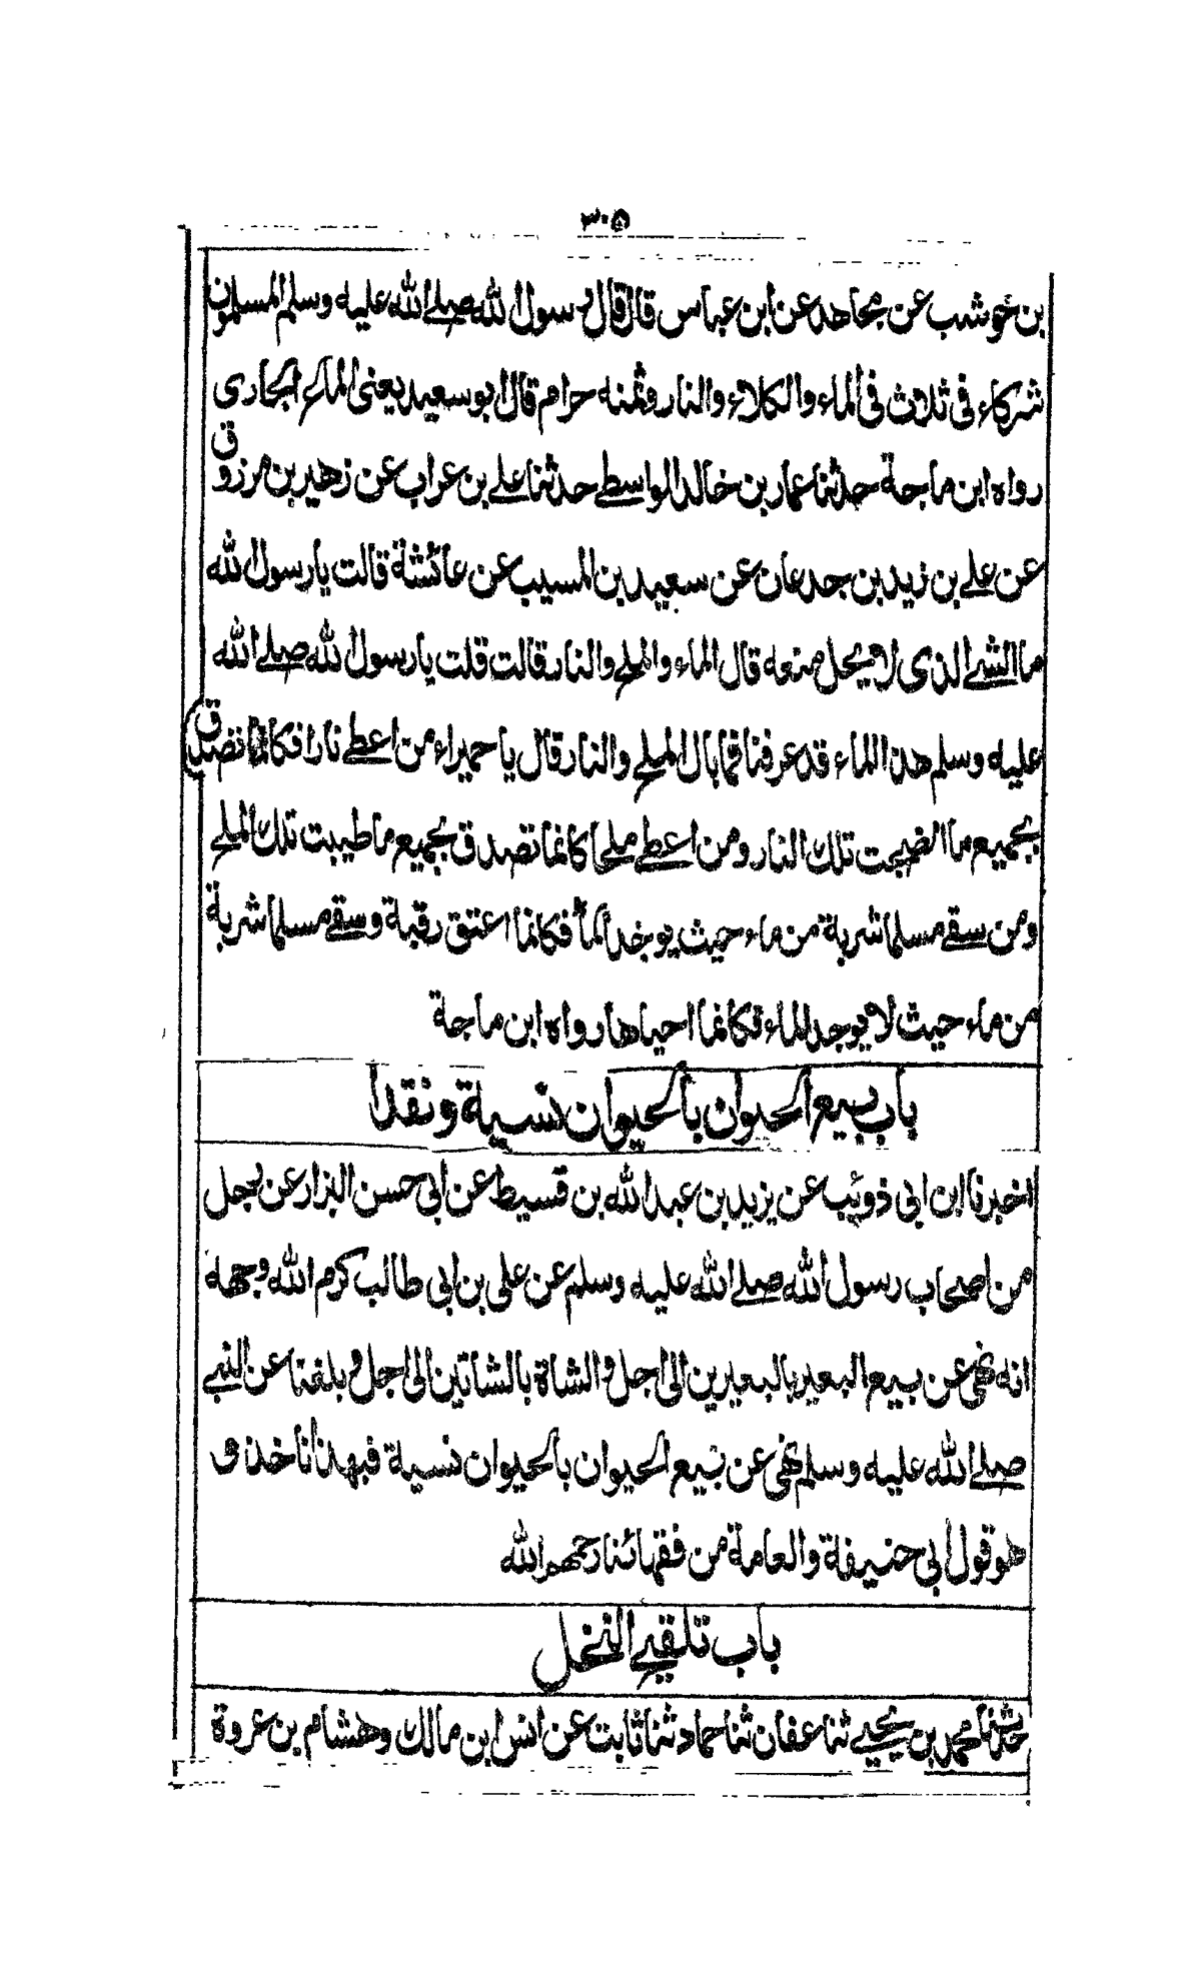 ۳۰۵
بن خوشب عن مجاهد عن ابن عباس قال قال رسول لله صلے الله عليه وسلم المسلمون
شركاء فى ثلاث فى الماء والكلاء والنار وثمنه حرام قال بوسعيد يعنى الماء الجارى
رواه ابن ماجة حدثنا عمار بن خالد الواسطے حدثنا علے بن عراب عن زهير بن مرزوق
عن علے بن زيد بن جدعان عن سعيد بن المسيب عن عائشة قالت يارسول لله
ما الشئ الذى لا يحل منعه قال الماء والملح والنار قالت قلت يارسول لله صلے الله
عليه وسلم هذا الماء قد عرفنا فما بال الملح والنار قال يا حميراء من اعطے نارا فكانما تصدق
بجميع ما انضجت تلك النار ومن اعطے ملحا كانما تصدق بجميع ما طيبت تلك الملح
ومن سقے مسلما شربة من ماء حيث يوخد الماء فكانما اعتق رقبة وسقے مسلما شربة
من ماء حيث لا يوجد الماء فكانما احياها رواه ابن ماجة
باب بيع الحيوان بالحيوان نسية ونقدا
اخبرنا ابن ابى ذوئب عن يزيد بن عبد الله بن قسيط عن ابى حسن البزار عن رجل
من اصحاب رسول الله صلے الله عليه وسلم عن على بن ابى طالب كرم الله وجهه
انه نهى عن بيع البعير بالبعيرين الى اجل والشاة بالشاتين الى اجل وبلغنا عن النبے
صلے الله عليه وسلم نهى عن بيع الحيوان بالحيوان نسية فبهذا ناخذ و
هو قول ابى حنيفة والعامة من فقهائنا رحمهم الله
باب تلقيح النخل
حدثنا محمد بن يحيے ثنا عفان ثنا حماد ثنا ثابت عن انس ابن مالك وهشام بن عروة